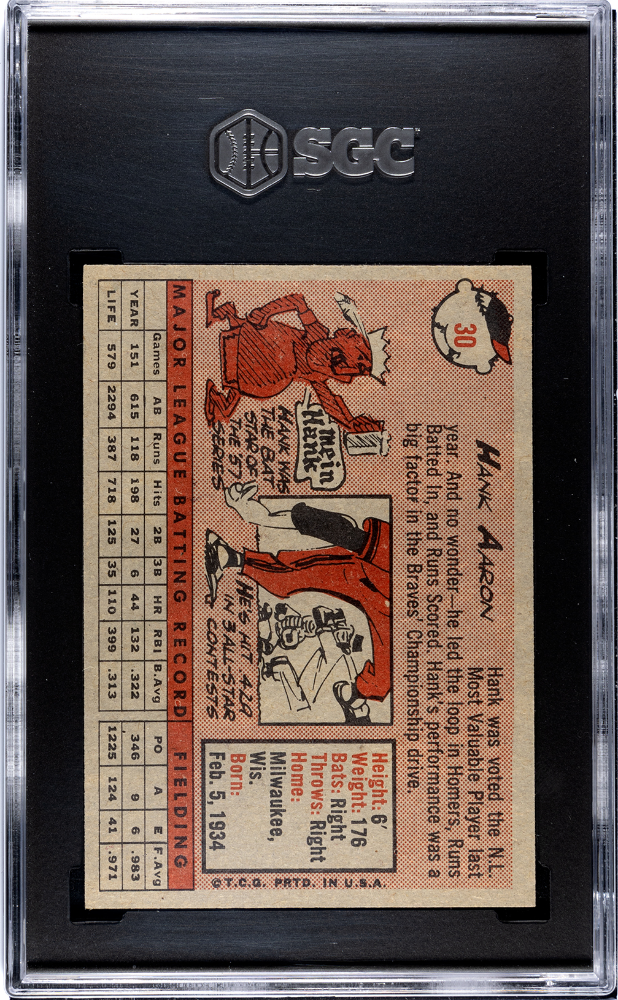 SGC
30
HANK AARON
Hank was voted the N.L.
Most Valuable Player last
year. And no wonder—he led the loop in Homers, Runs
Batted In, and Runs Scored. Hank's performance was a
big factor in the Braves' Championship drive.
mein
Hank
HANK WAS
THE BAT
STAR OF
THE 57
SERIES
HE'S HIT .429
IN 3 ALL-STAR
CONTESTS
Height: 6'
Weight: 176
Bats: Right
Throws: Right
Home:
Milwaukee,
Wis.
Born:
Feb. 5, 1934
©T.C.G. PRTD. IN U.S.A.
MAJOR LEAGUE BATTING RECORD FIELDING
Games AB Runs Hits 2B 3B HR RBI B.Avg PO A E F.Avg
YEAR 151 615 118 198 27 6 44 132 .322 346 9 6 .983
LIFE 579 2294 387 718 125 35 110 399 .313 1225 124 41 .971